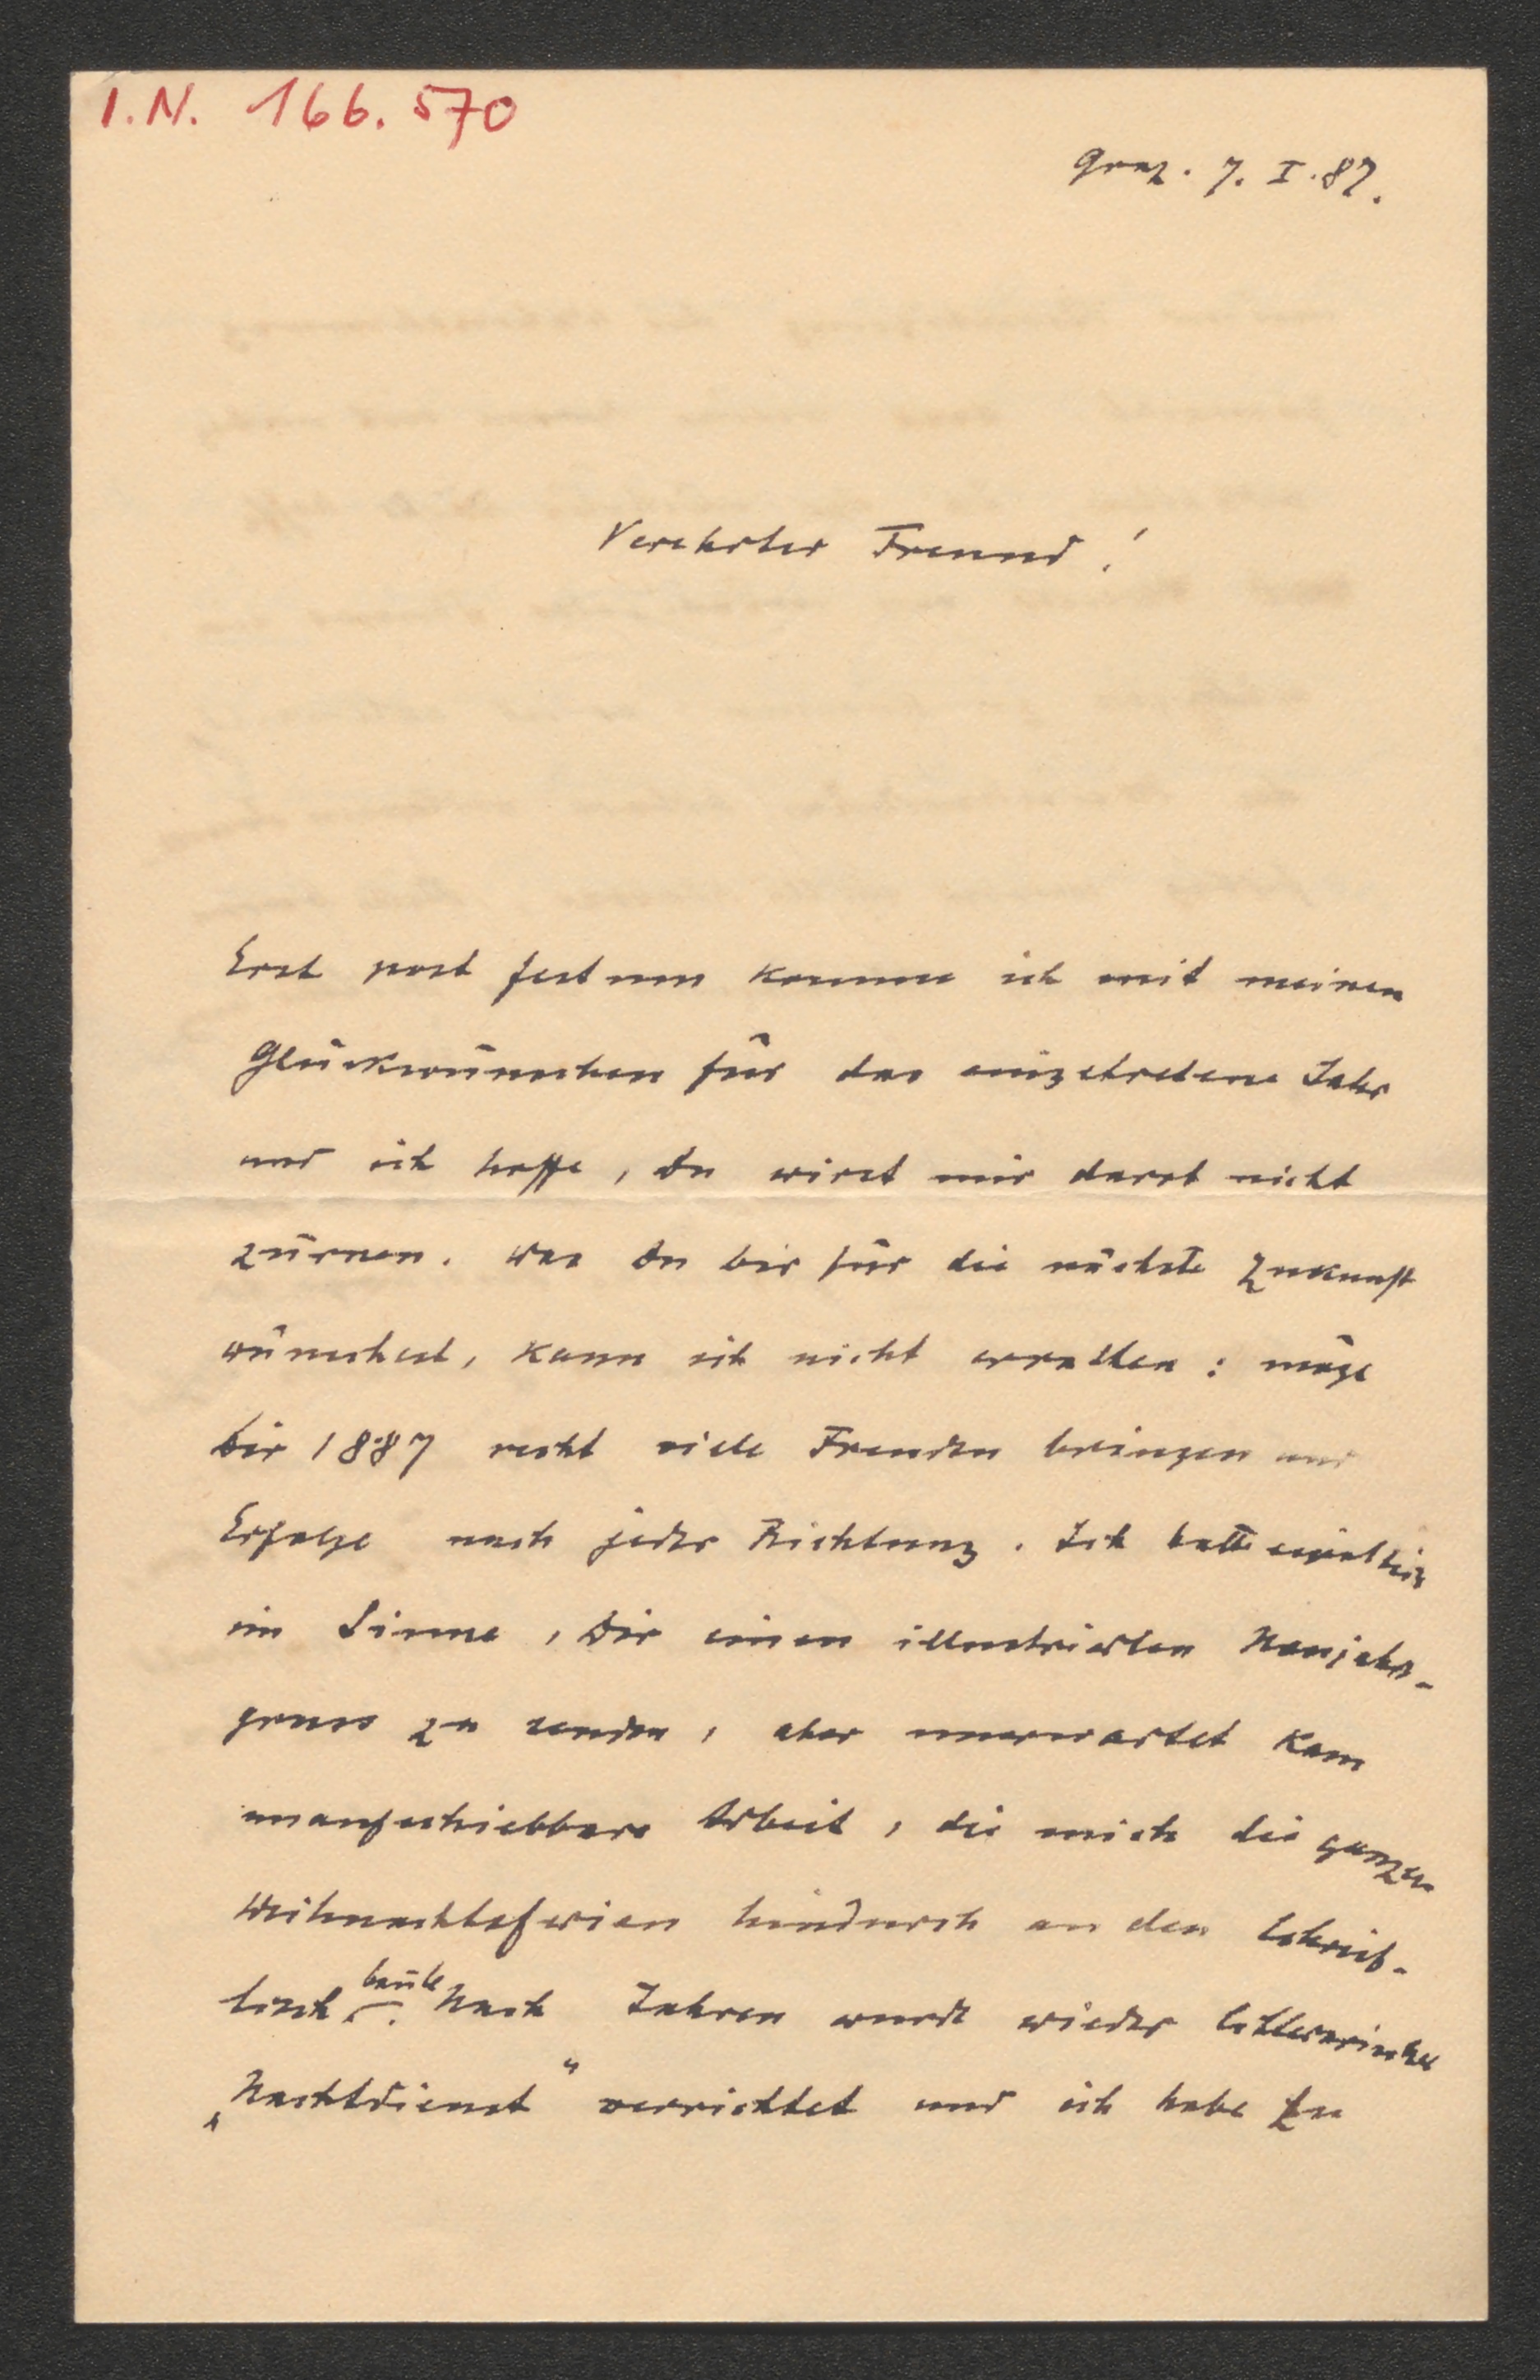 I.N. 166.570
Graz. 7. I. 87.
Verehrter Freund!
Erst post festum komme ich mit meinen
Glückwünschen für das eingetretene Jahr
und ich hoffe, Du wirst mir darob nicht
zürnen. Was Du Dir für die nächste Zukunft
wünschest, kann ich nicht errathen: möge
Dir 1887 recht viele Freuden bringen und
Erfolge nach jeder Richtung. Ich hatte
im Sinne, Dir einen illustrierten Neujahrs-
gruss zu senden, aber unerwartet kam
unaufschiebbare Arbeit, die mich die ganzen
Weihnachtsferien hindurch an den Schreib-
tisch bannte. Nach Jahren wurde wieder litterarischer
„Nachtdienst" verrichtet und ich habe zu